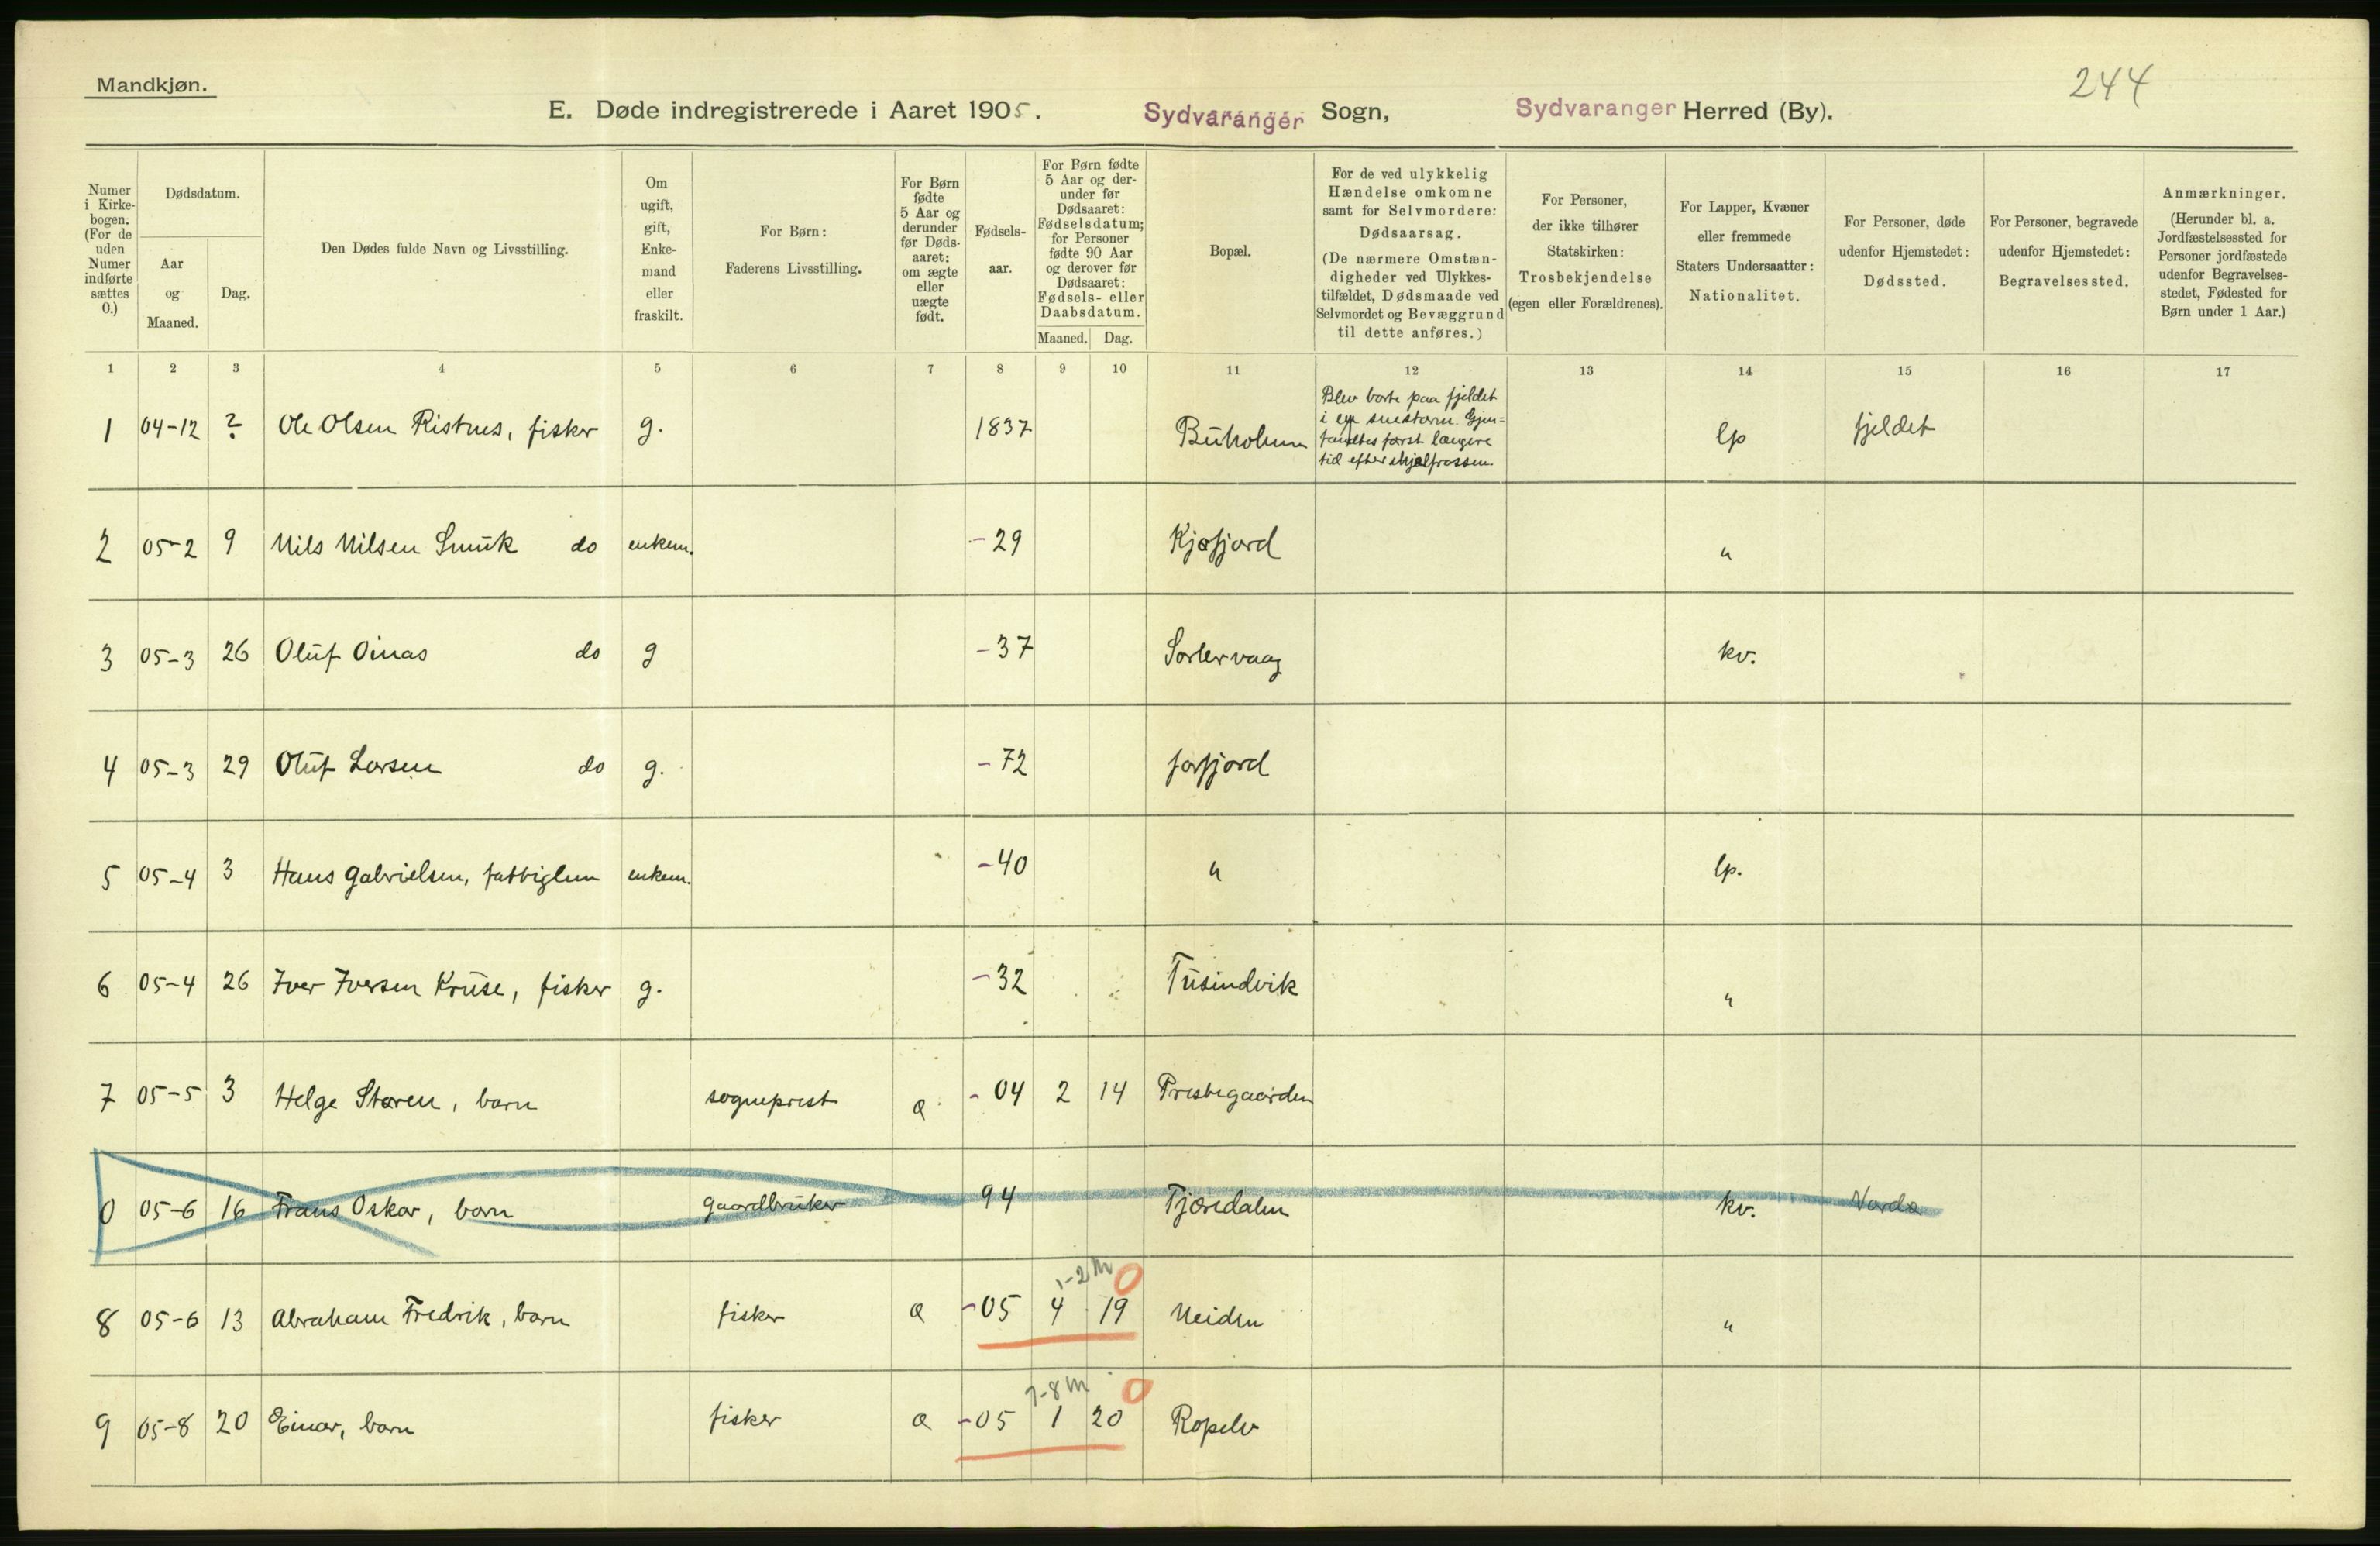 Mandkjøn.
244
E. Døde indregistrerede i Aaret 1905. Sydvaranger Sogn, Sydvaranger Herred (By).
Numer i Kirkebogen. (For de uden Numer indførte sættes 0.)
Dødsdatum.
Aar og Maaned.
Dag.
Den Dødes fulde Navn og Livsstilling.
Om ugift, gift, Enkemand eller fraskilt.
For Børn: Faderens Livsstilling.
For Børn fødte 5 Aar og derunder før Dødsaaret: om ægte eller uægte født.
Fødselsaar.
For Børn fødte 5 Aar og derunder før Dødsaaret: Fødselsdatum; for Personer fødte 90 Aar og derover før Dødsaaret: Fødsels- eller Daabsdatum.
Maaned. Dag.
Bopæl.
For de ved ulykkelig Hændelse omkomne samt for Selvmordere: Dødsaarsag. (De nærmere Omstændigheder ved Ulykkestilfældet, Dødsmaade ved Selvmordet og Bevæggrund til dette anføres.)
For Personer, der ikke tilhører Statskirken: Trosbekjendelse (egen eller Forældrenes).
For Lapper, Kvæner eller fremmede Staters Undersaatter: Nationalitet.
For Personer, døde udenfor Hjemstedet: Dødssted.
For Personer, begravede udenfor Hjemstedet: Begravelsessted.
Anmærkninger. (Herunder bl. a. Jordfæstelsessted for Personer jordfæstede udenfor Begravelsesstedet, Fødested for Børn under 1 Aar.)
1 2 3 4 5 6 7 8 9 10 11 12 13 14 15 16 17
1 04-12 ? Ole Olsen Ristnes, fisker g. 1837 Buholmen Blev borte paa fjeldet i en snestorm. først længere tid efter ihjelfrossen. lp fjeldet
2 05-2 9 Nils Nilsen Smuk do enkem. -29 Kjøfjord "
3 05-3 26 Oluf Oinas do g -37 kv.
4 05-3 29 Oluf Larsen do g. -72 Jarfjord
5 05-4 3 Hans Gabrielsen, fattiglem enkem. -40 " lp.
6 05-4 26 Iver Iversen Kruse, fisker g. -32 Tusindvik "
7 05-5 3 Helge Støren, barn sogneprest æ -04 2 14 Prestegaarden
0 05-6 16 Frans Oskar, barn gaardbruker 94 Tjæredalen kv. Vardø
1-2 m 0
8 05-6 13 Abraham Fredrik, barn fisker æ -05 4 19 Neiden "
7-8 m 0
9 05-8 20 Einar, barn fisker æ -05 1 20 Ropelv